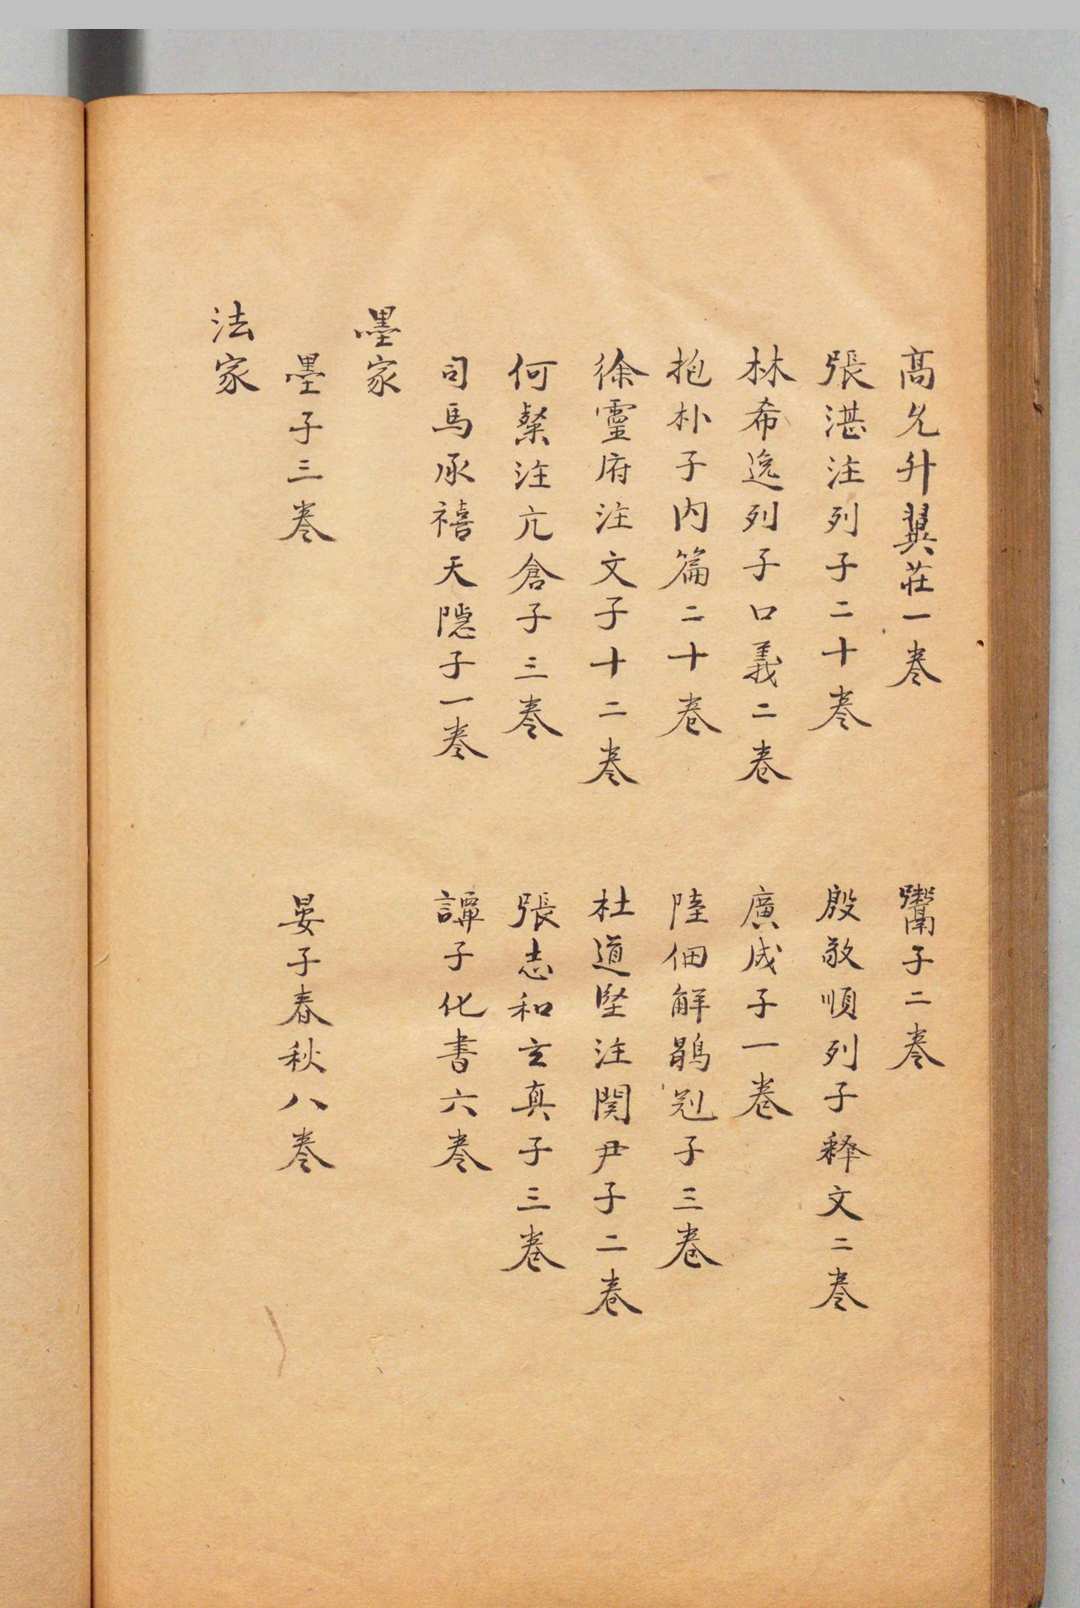 高允升翼莊一巻 鬻子二巻
張湛注列子二十巻 殷敬順列子釋文二巻
林希逸列子口義二巻 廣成子一巻
抱朴子内篇二十巻 陸佃解鶡冠子三巻
徐靈府注文子十二巻 杜道堅注関尹子二巻
何粲注亢倉子三巻 張志和玄真子三巻
司馬承禧天隱子一巻 譚子化書六巻
墨家
墨子三巻 晏子春秋八巻
法家